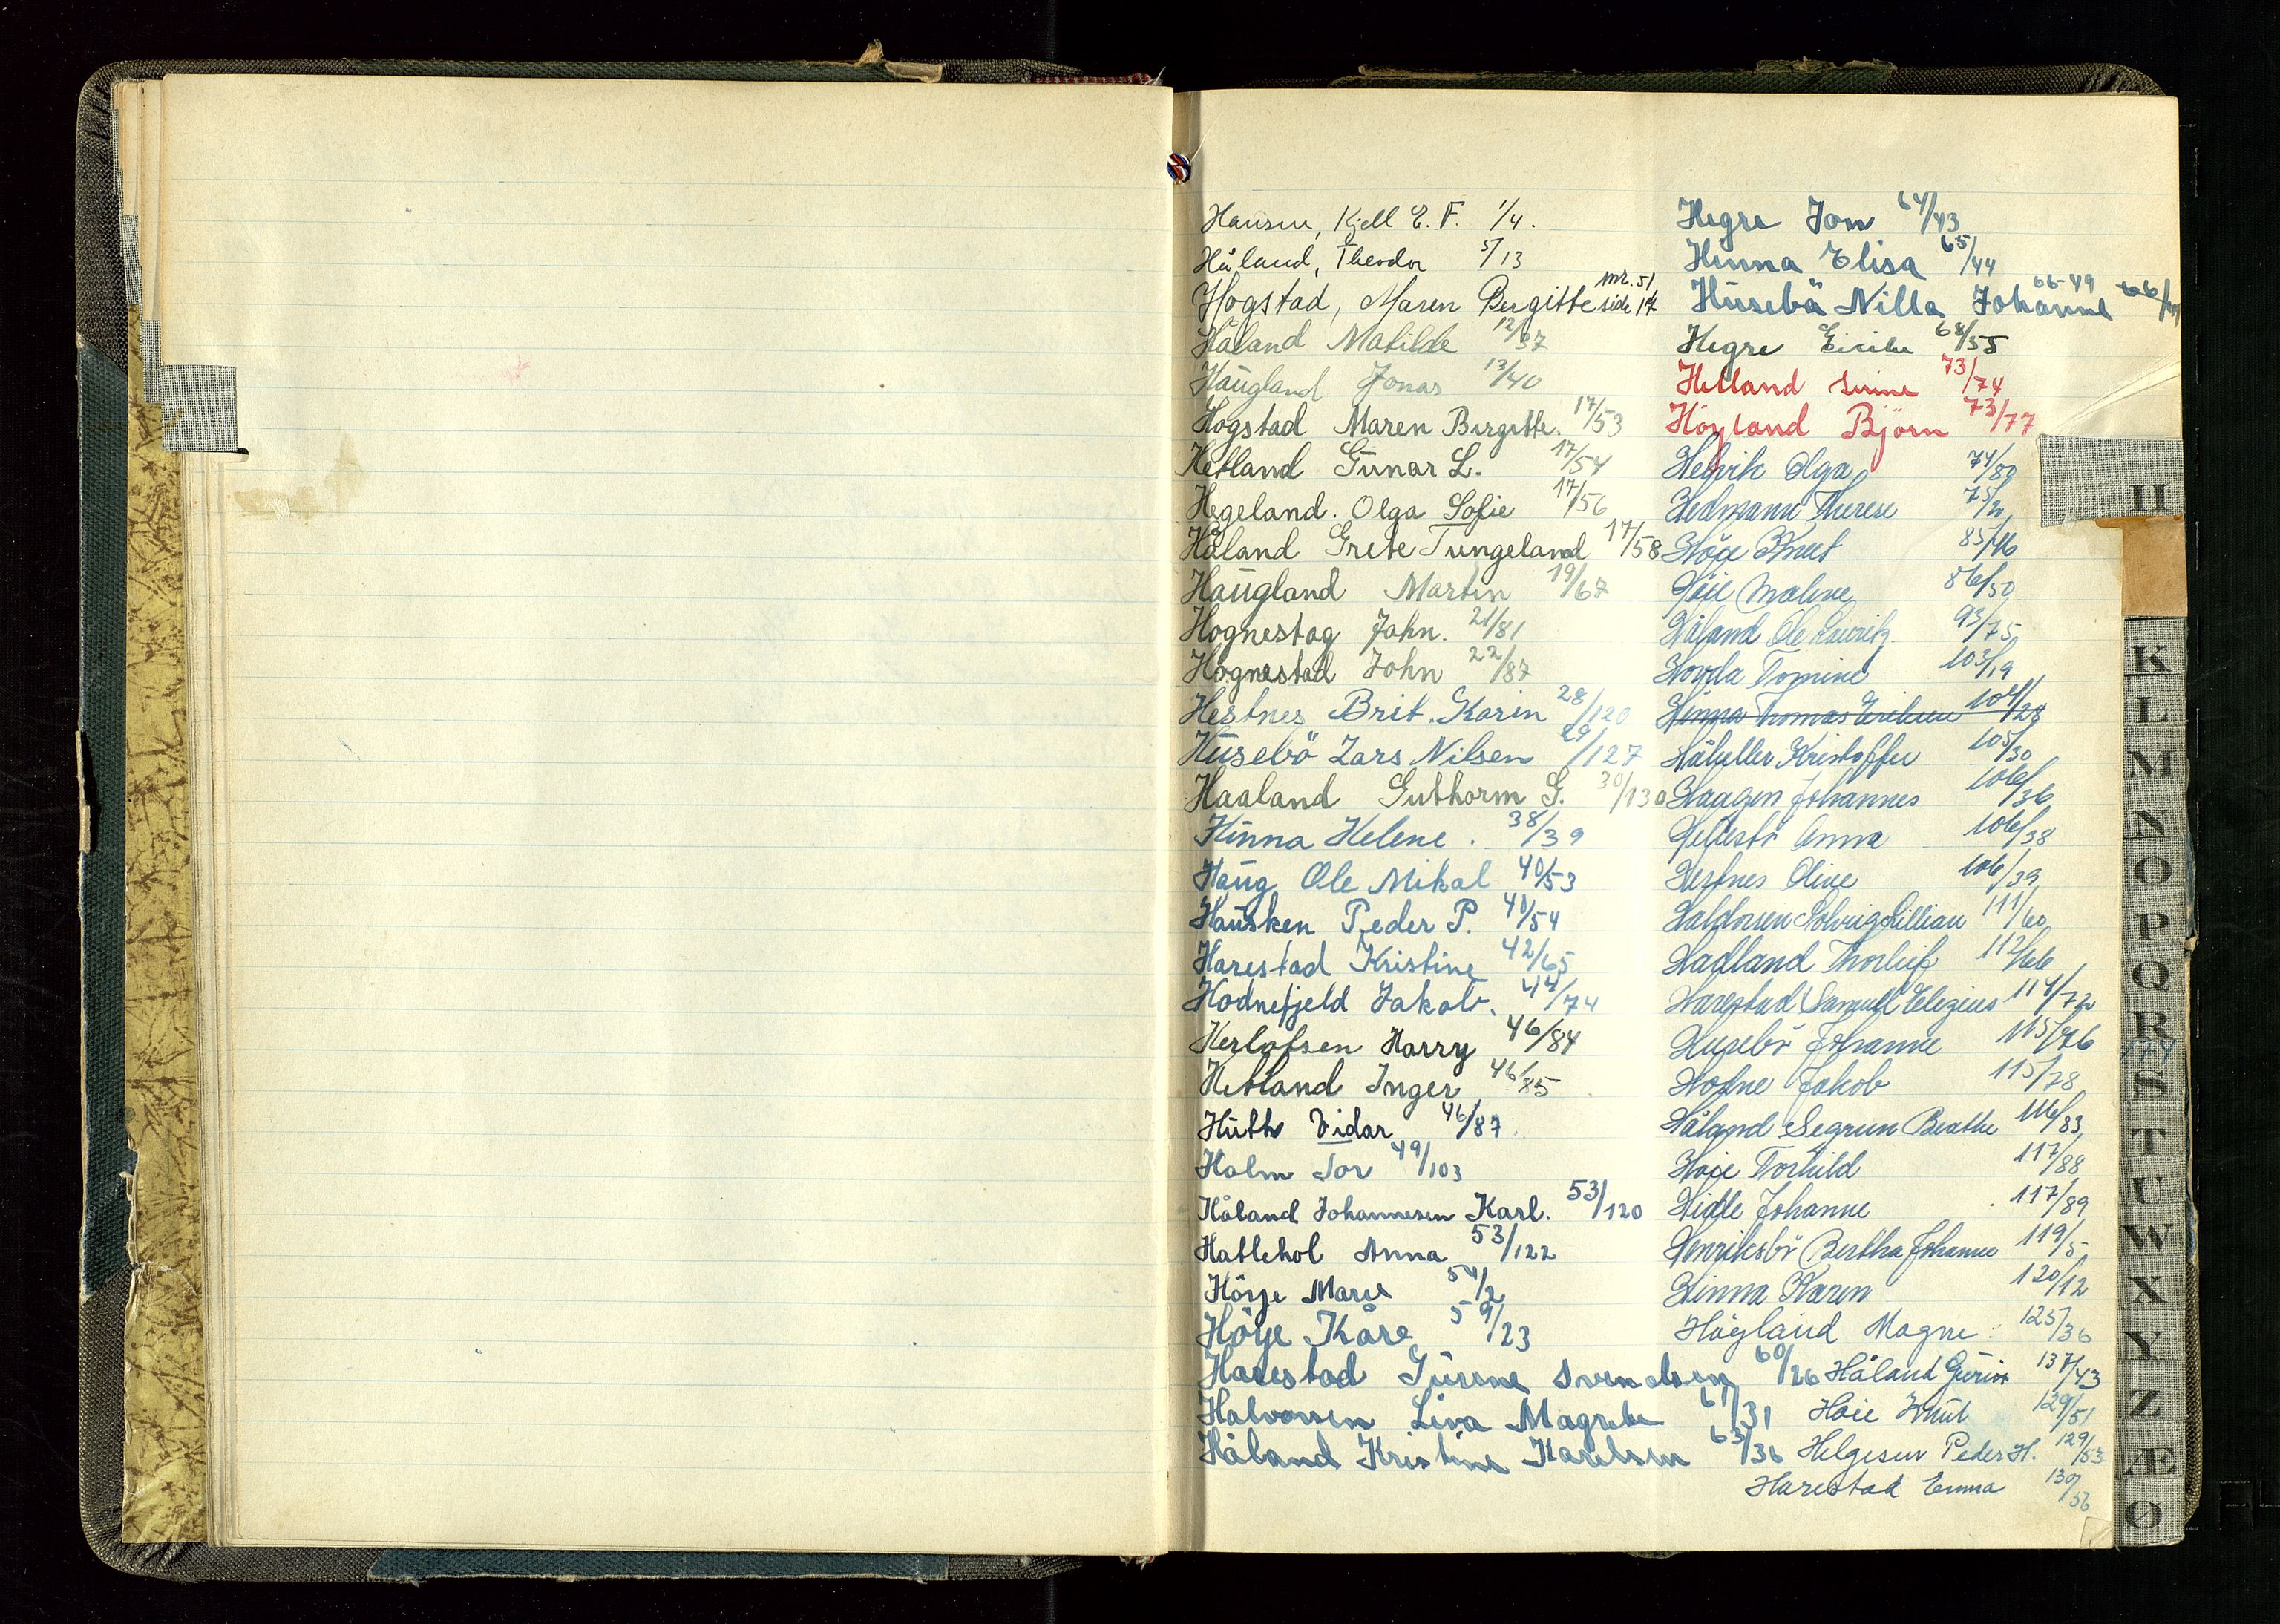 Hansen, Kjell E. F. 1/4.
Håland, Theodor 5/13
Hogstad, Maren Bergitte nr. 51 side 17
Håland Matilde 12/37
Haugland Jonas 13/40
Hogstad Maren Birgitte. 17/53
Hetland Gunar L. 17/54
Hegeland. Olga Sofie 17/56
Håland Grete Tungeland 17/58
Haugland Martin 19/67
Hognestag John. 21/81
Hognestad John 22/87
Hestnes Brit. Karin 28/120
Husebö Lars Nilsen 29/127
Haaland Guthorm G. 30/130
Hinna Helene. 38/39
Haug Ole Mikal 40/53
Hausken Peder P. 40/54
Harestad Kristine 42/65
Hodnefjeld Jakob. 44/74
Herlofsen Harry 46/84
Hetland Inger 46/85
Huth Vidar 46/87
Holm Tor 49/103
Håland Johannesen Karl. 53/120
Hatlehol Anna 53/122
Höye Marie 54/2
Höye Kåre 59/23
Harestad Gurine Svendsen 60/26
Halvorsen Liva Magrete 61/31
Håland Kristine Karelsen 63/36
Hegre Jon 64/43
Hinna Elisa 65/44
Husebö Nilla Johanne 66-49
Hegre 68/55
Hetland 73/74
Höyland Björn 73/77
Helvik Olga 74/80
Hedmann Therese 75/2
Höye Knut 85/46
Höie Malene 86/50
Håland Ole Lauritz 93/75
Hovda Tomine 103/19
Hinna Thomas Eriksen 104/28
Håheller Kristoffer 105/30
Haagen Johannes 106/36
Anna 106/38
Hestnes Olive 106/39
Haldorsen Solveig Lillian 111/60
Hadland Thorleif 112/66
Harestad Samuel Elezius 114/72
Husebö Johanne 115/76
Hofne Jakob 115/78
Håland Segrun Beathe 116/83
Höie Torhild 117/88
Hidle Johanne 117/89
Henriksbö Bertha Johanne 119/5
Hinna Karen 120/12
Höyland Magne 125/36
Håland Guri 137/43
Höie Knut 129/51
Helgesen Peder H. 129/53
Harestad Emma 130/56
H
K
L
M
N
O
P
Q
R
S
T
U
W
X
Y
Z
Æ
Ø